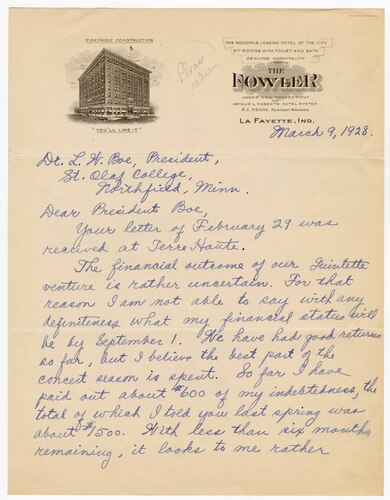 FIREPROOF CONSTRUCTION
"YOU'LL LIKE IT"
Please
return
THE MODERN & LEADING HOTEL OF THE CITY
ROOMS WITH TOILET AND BATH
GENUINE HOSPITALITY
THE
FOWLER
UNDER NEW MANAGEMENT
ARTHUR L. ROBERTS HOTEL SYSTEM
RESIDENT MANAGER
LA FAYETTE, IND.
March 9, 1928.
Dr. L. W. Boe, President,
St. Olaf College,
Northfield, Minn.
Dear President Boe,
Your letter of February 29 was
received at Terre Haute.
The financial outcome of our Quintette
venture is rather uncertain. For that
reason I am not able to say with any
definiteness what my financial status will
be by September 1. We have had good returns
so far, but I believe the best part of the
concert season is spent. So far I have
paid out about $600 of my indebtedness, the
total of which I told you last spring was
about $1500. With less than six months
remaining, it looks to me rather